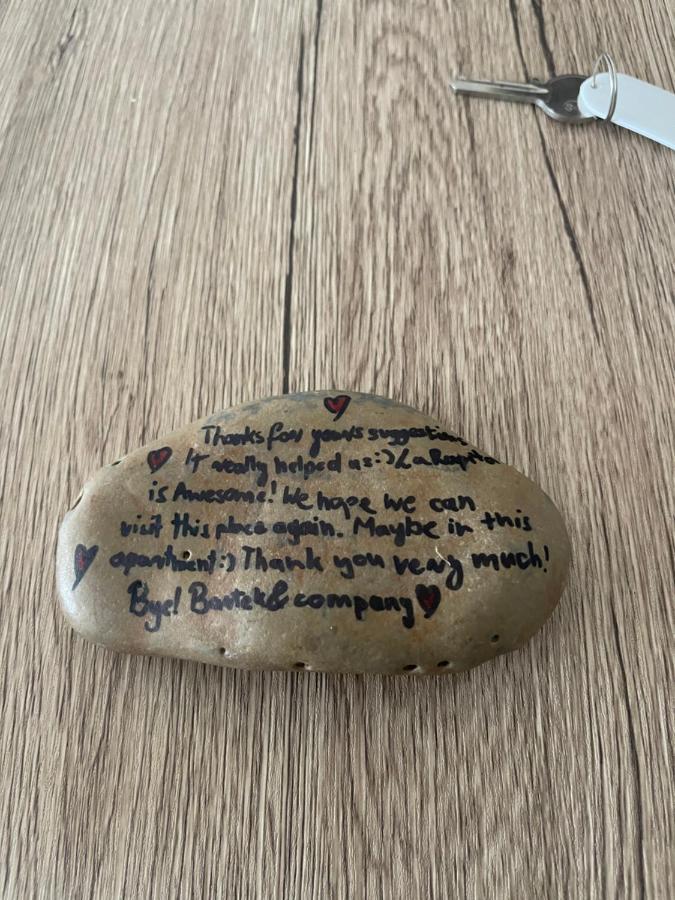 Thanks for yours suggestions
IT really helped us:) La Rapita
is Awesome! We hope we can
visit this place again. Maybe in this
apartment:) Thank you very much!
Bye! Bartek & company